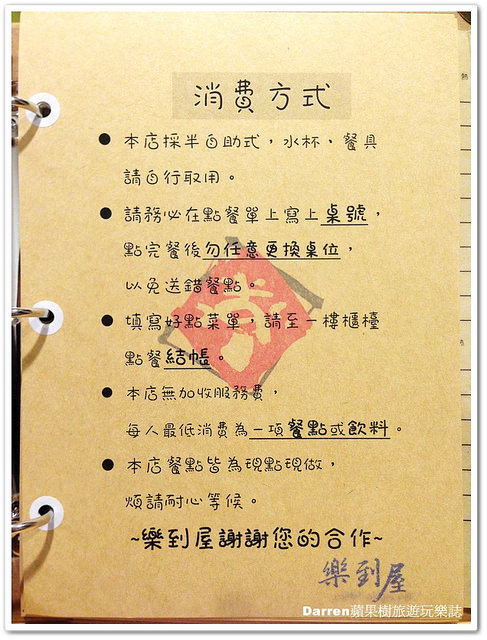 消費方式
● 本店採半自助式，水杯、餐具
請自行取用。
● 請務必在點餐單上寫上桌號，
點完餐後勿任意更換桌位，
以免送錯餐點。
● 填寫好點菜單，請至一樓櫃檯
點餐結帳。
● 本店無加收服務費，
每人最低消費為一項餐點或飲料。
● 本店餐點皆為現點現做，
煩請耐心等候。
~樂到屋謝謝您的合作~
樂到屋
Darren蘋果樹旅遊玩樂誌